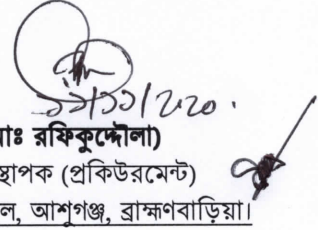 ১৯/১১/২০২০.
াঃ রফিকুদ্দৌলা)
স্থাপক (প্রকিউরমেন্ট)
ল, আশুগঞ্জ, ব্রাহ্মণবাড়িয়া।